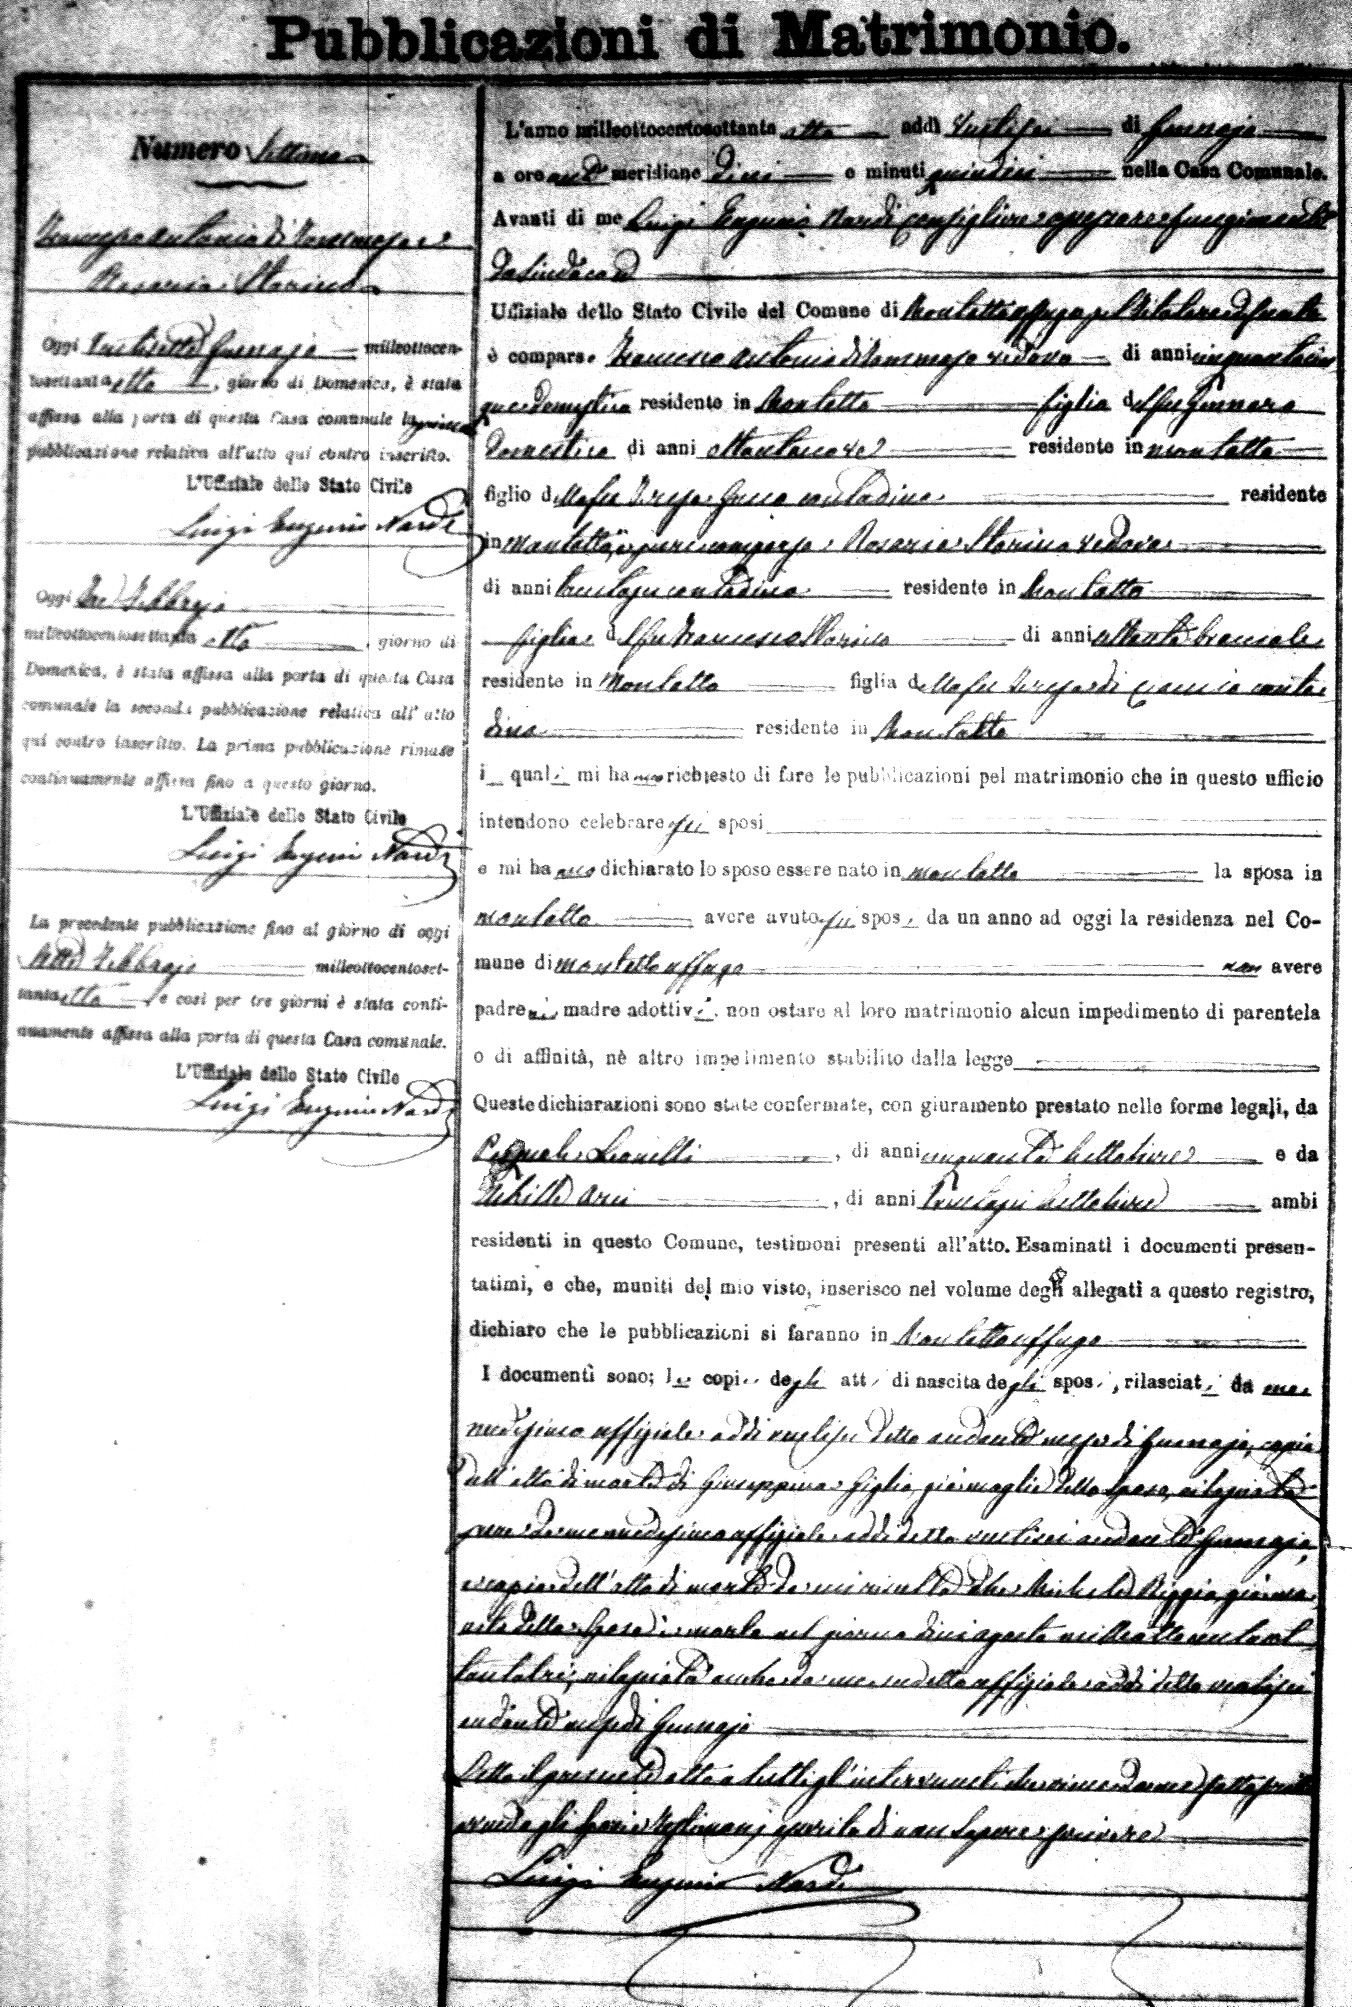 Pubblicazioni di Matrimonio.
Numero Settimo
Francescantonio di Tommaso e
Rosaria Storino
Oggi Ventisette Gennajo milleottocen-
tosettanta otto, giorno di Domenica, è stata
affissa alla porta di questa Casa comunale la prima
pubblicazione relativa all'atto qui contro inscritto.
L'Uffiziale dello Stato Civile
Luigi Eugenio Nardi
Oggi Tre Febbrajo
milleottocentosettanta otto, giorno di
Domenica, è stata affissa alla porta di questa Casa
comunale la seconda pubblicazione relativa all'atto
qui contro inscritto. La prima pubblicazione rimase
continuamente affissa fino a questo giorno.
L'Uffiziale dello Stato Civile
Luigi Eugenio Nardi
La precedente pubblicazione fino al giorno di oggi
Sette Febbrajo milleottocentoset-
tanta otto e così per tre giorni è stata conti-
nuamente affissa alla porta di questa Casa comunale.
L'Uffiziale dello Stato Civile
Luigi Eugenio Nardi
L'anno milleottocentosettanta otto addì Ventisei di Gennajo
a ore anti meridiane Dieci e minuti quindici nella Casa Comunale.
Avanti di me Luigi Eugenio Nardi Consigliere anziano funzionante
da Sindaco ed
Uffiziale dello Stato Civile del Comune di Montalto Uffugo pel titolare defunto
è comparso Francesco Antonio di Tommaso vedovo di anni cinquantacin
que domestico residente in Montalto figlio del fu Gennaro
Domestico di anni ottantanove residente in Montalto
figlio della fu Teresa contadina residente
in Montalto, è pure comparsa Rosaria Storino vedova
di anni trentasei contadina residente in Montalto
figlia del fu Francesco Storino di anni settanta bracciale
residente in Montalto figlia della fu Teresa di conta
dina residente in Montalto
i quali mi hanno richiesto di fare le pubblicazioni pel matrimonio che in questo ufficio
intendono celebrare gli sposi
e mi hanno dichiarato lo sposo essere nato in Montalto la sposa in
Montalto avere avuto gli sposi da un anno ad oggi la residenza nel Co-
mune di Montalto Uffugo non avere
padre nè madre adottivi, non ostare al loro matrimonio alcun impedimento di parentela
o di affinità, nè altro impedimento stabilito dalla legge
Queste dichiarazioni sono state confermate, con giuramento prestato nelle forme legali, da
Pasquale Leonetti, di anni cinquanta Settatore e da
Achille Arci, di anni trentasei Settatore ambi
residenti in questo Comune, testimoni presenti all'atto. Esaminati i documenti presen-
tatimi, e che, muniti del mio visto, inserisco nel volume degli allegati a questo registro,
dichiaro che le pubblicazioni si faranno in Montalto Uffugo
I documenti sono; le copie degli atti di nascita degli sposi, rilasciati da me
medesimo uffiziale addì ventisei dello andante mese di Gennajo, copia
dell'atto di morte di Giuseppina Giglio, già moglie dello sposo, rilasciata
pure da me medesimo uffiziale addì detto ventisei andante Gennajo,
e copia dell'atto di morte da cui risulta che Michele Reggio già ma
rito della sposa è morto nel giorno dieci agosto milleottocentoset
tantatre, rilasciata anche da me sudetto uffiziale addì detto ventisei
andante mese di Gennajo
Letto il presente atto a tutti gl'intervenuti
Luigi Eugenio Nardi